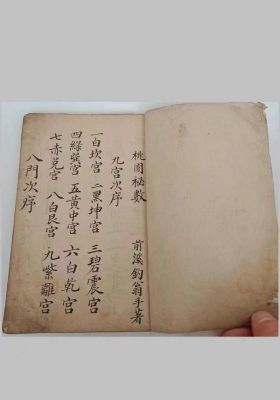 桃園秘數 前溪釣翁手著
九宮次序
一白坎宮 二黑坤宮 三碧震宮
四綠巽宮 五黃中宮 六白乾宮
七赤兌宮 八白艮宮 九紫離宮
八門次序